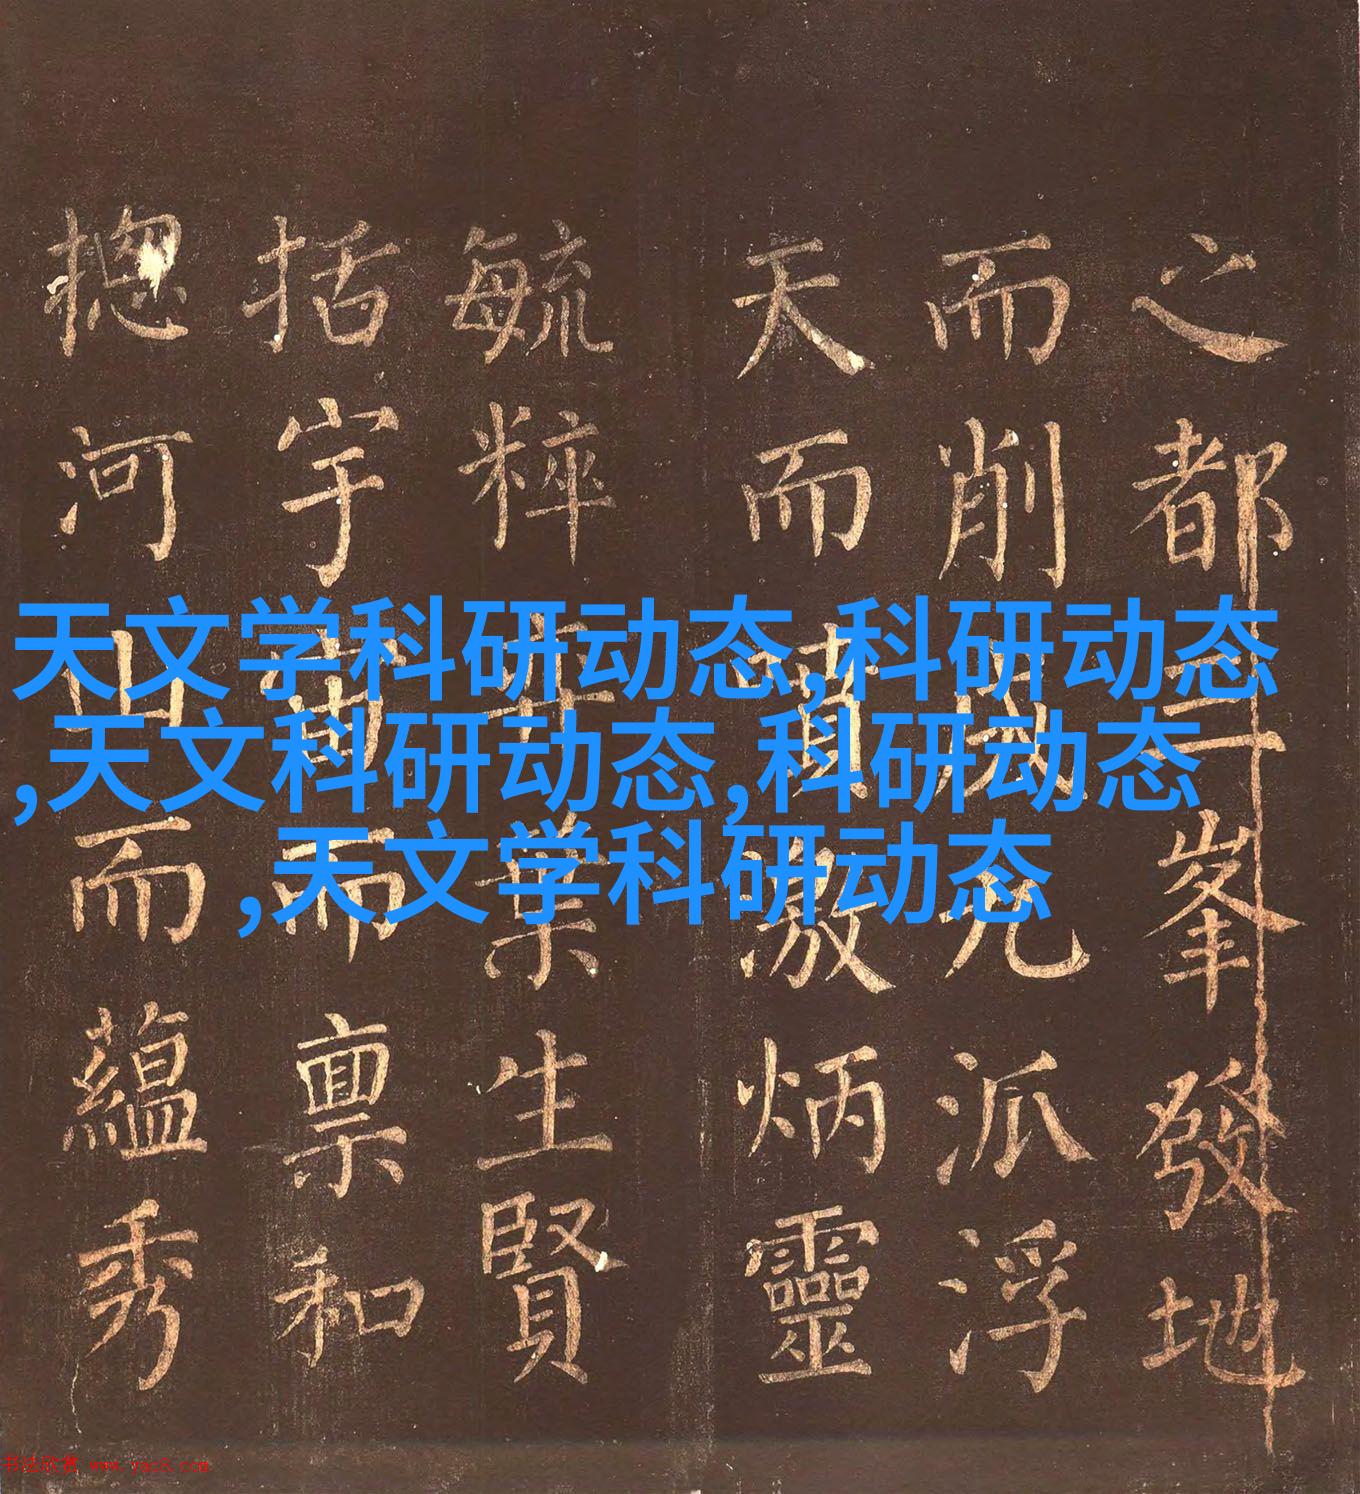 之都三峯發地
而削成九派浮
天而噴激炳靈
毓粹葉生賢
括宇宙而禀和
揔河山而蘊秀
天文学科研动态,科研动态
,天文科研动态,科研动态
,天文学科研动态
书法欣赏 www.yac8.com